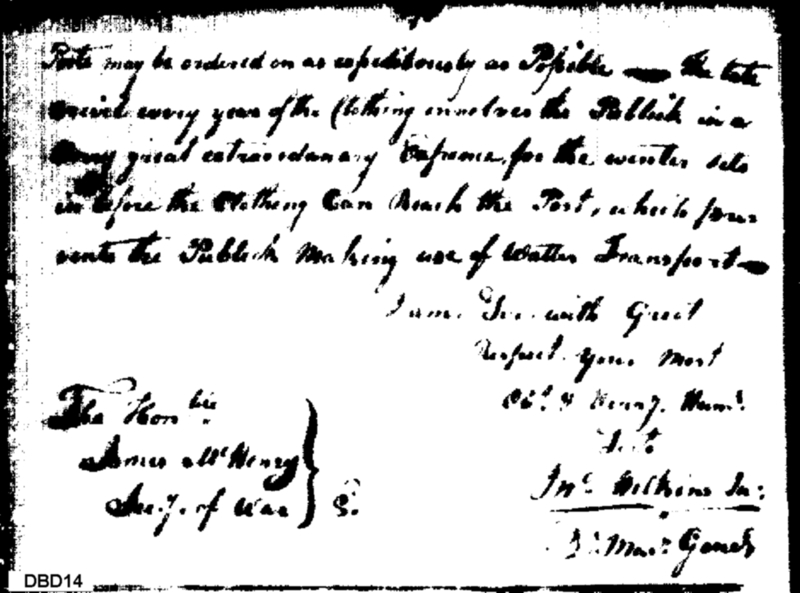 Posts may be ordered on as expeditiously as Possible — the late
arrival every year of the Clothing involves the Publick in a
very great extraordanary Expence, for the winter sets
in before the Clothing Can Reach the Post, which prevents
the Publick Making use of Watter Transport —
I am Sir with Great
Respect your Most
Obt. & Hum.
The Honble
James McHenry
Secy. of War
Jno. Wilkins Jr.
Qr. Mas. Genl.
DBD14